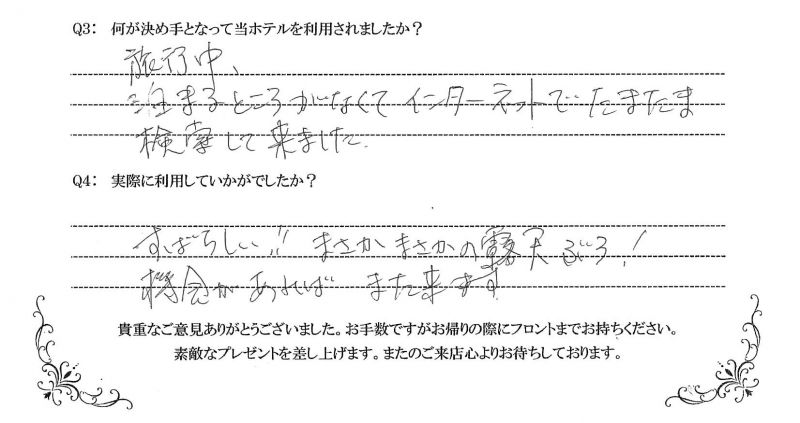 Q3: 何が決め手となって当ホテルを利用されましたか?
旅行中、
泊まるところがなくてインターネットでたまたま
検索して来ました。
Q4: 実際に利用していかがでしたか?
すばらしい!! まさかまさかの露天ぶろ!
機会があれば また来ます
貴重なご意見ありがとうございました。お手数ですがお帰りの際にフロントまでお持ちください。
素敵なプレゼントを差し上げます。またのご来店心よりお待ちしております。